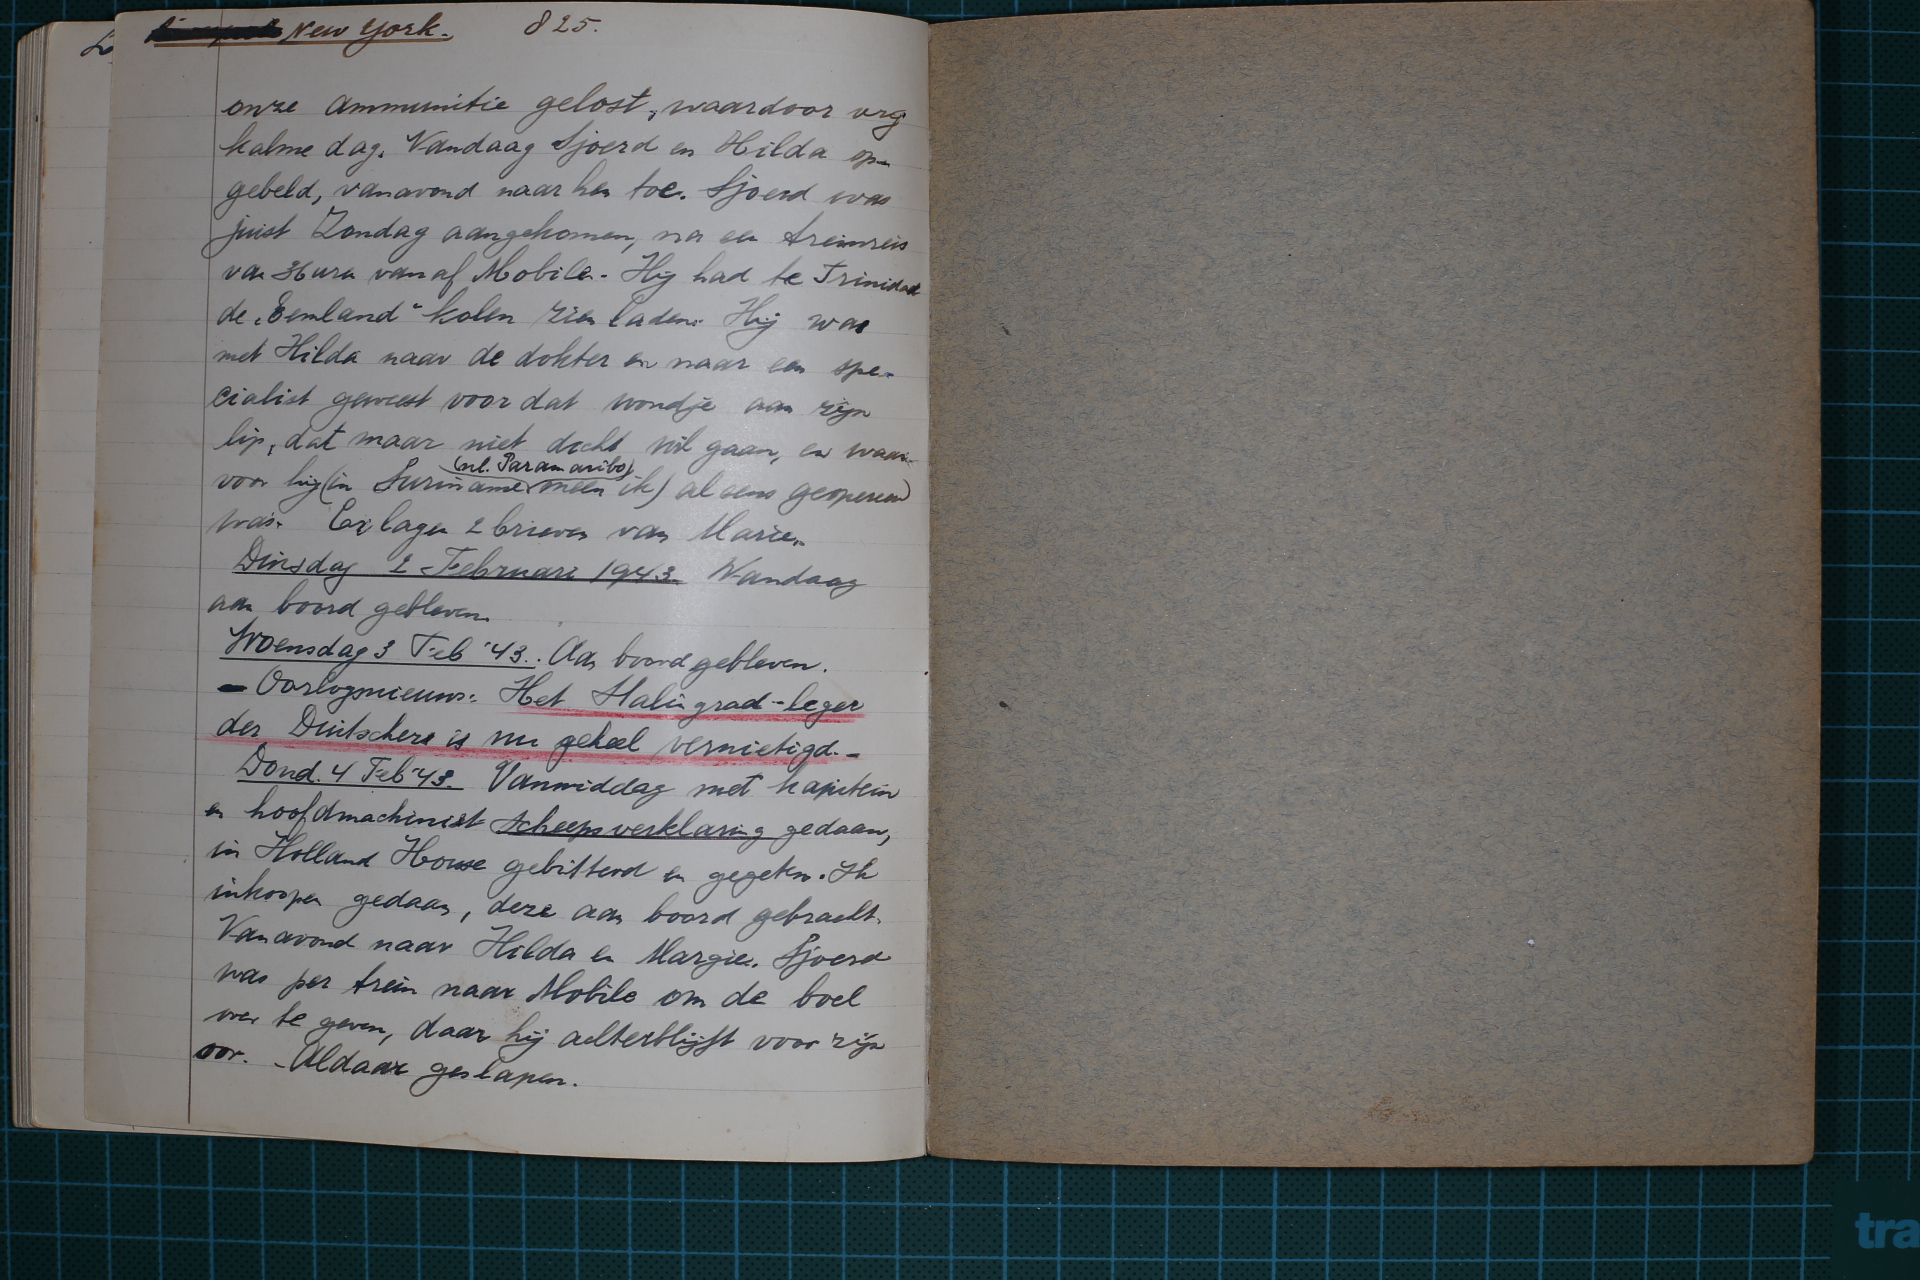 New York. 825.
onze ammunitie gelost, waardoor vrij
kalme dag. Vandaag Sjoerd en Hilda op-
gebeld, vanavond naar hen toe. Sjoerd was
juist Zondag aangekomen, na een treinreis
van 36 uren vanaf Mobile. Hij had te Trinidad
de "Eemland" kolen zien laden. Hij was
met Hilda naar de dokter en naar een spe-
cialist geweest voor dat wondje aan zijn
lip, dat maar niet dicht wil gaan, en waar-
(nl. Paramaribo)
voor hij (in Suriname meen ik) al eens geopereerd
was. Er lagen 2 brieven van Marie.
Dinsdag 2 Februari 1943. Vandaag
aan boord gebleven.
Woensdag 3 Feb '43. Aan boord gebleven.
- Oorlogsnieuws: Het Stalingrad-leger
der Duitschers is nu geheel vernietigd. -
Dond. 4 Feb '43. Vanmiddag met kapitein
en hoofdmachinist scheepsverklaring gedaan,
in Holland House gebitterd en gegeten. Ik
inkoopen gedaan, deze aan boord gebracht.
Vanavond naar Hilda en Margie. Sjoerd
was per trein naar Mobile om de boel
over te geven, daar hij achterblijft voor zijn
oor. - Aldaar geslapen.
tra